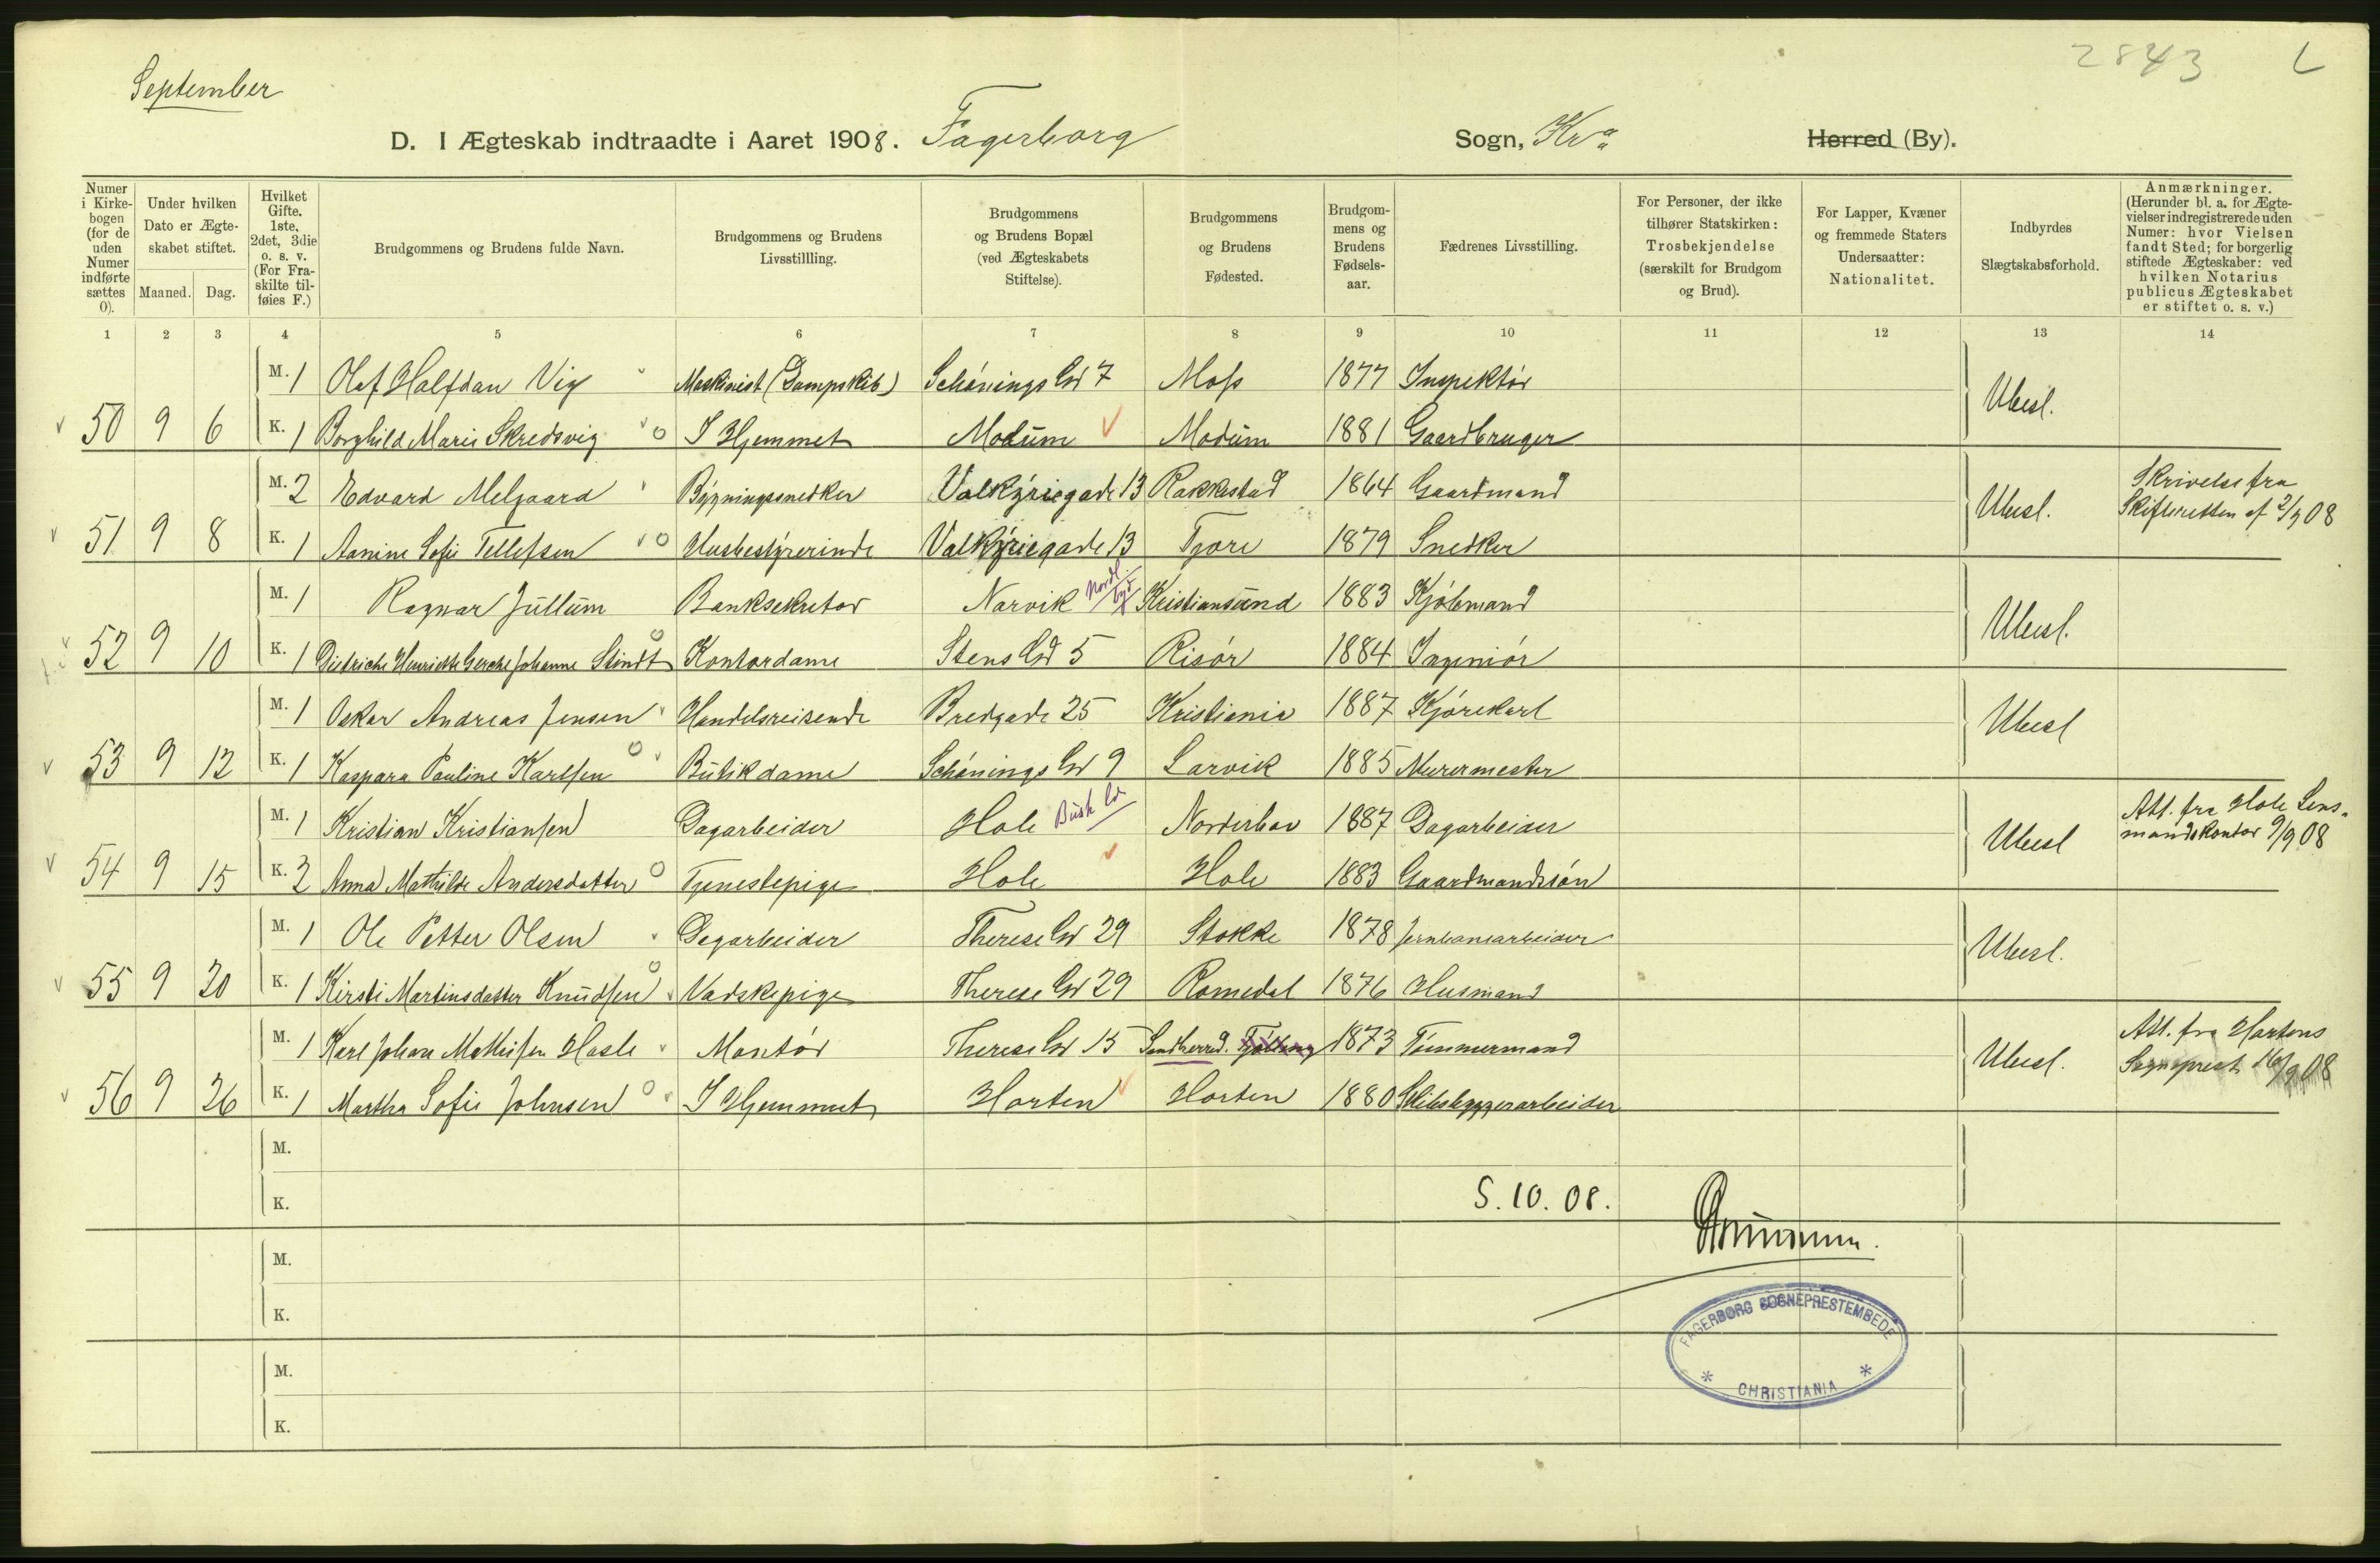 2843 L
September
D. I Ægteskab indtraadte i Aaret 1908. Fagerborg Sogn, Kra Herred (By).
Numer i Kirkebogen (for de uden Numer indførte sættes 0).
Under hvilken Dato er Ægteskabet stiftet.
Maaned. Dag.
Hvilket Gifte. 1ste, 2det, 3die o. s. v. (For Fraskilte tilføies F.)
Brudgommens og Brudens fulde Navn.
Brudgommens og Brudens Livsstillling.
Brudgommens og Brudens Bopæl (ved Ægteskabets Stiftelse).
Brudgommens og Brudens Fødested.
Brudgommens og Brudens Fødselsaar.
Fædrenes Livsstilling.
For Personer, der ikke tilhører Statskirken: Trosbekjendelse (særskilt for Brudgom og Brud).
For Lapper, Kvæner og fremmede Staters Undersaatter: Nationalitet.
Indbyrdes Slægtskabsforhold.
Anmærkninger. (Herunder bl. a. for Ægtevielser indregistrerede uden Numer: hvor Vielsen fandt Sted; for borgerlig stiftede Ægteskaber: ved hvilken Notarius publicus Ægteskabet er stiftet o. s. v.)
1 2 3 4 5 6 7 8 9 10 11 12 13 14
M. 1 Olaf Halfdan Vig Maskinist (Dampskib) Schønings Gd 7 Moss 1877 Inspektør
50 9 6 K. 1 Borghild Marie Skredsvig I Hjemmet Modum Modum 1881 Gaardbruger Ubesl.
M. 2 Edvard Melgaard Bygningssnedker Valkyriegade 13 Rakkestad 1864 Gaardmand Skrivelse fra
51 9 8 K. 1 Aanine Sofie Tellefsen Husbestyrerinde Valkyriegade 13 Tjøre 1879 Snedker Ubesl. Skifteretten af 2/9 08
M. 1 Ragnar Jullum Banksekretær Narvik Nordl Kristiansund 1883 Kjøbmand
52 9 10 K. 1 Didriche Henriette Gerche Johanne Stindt Kontordame Stens Gd 5 Risør 1884 Ingeniør Ubesl.
M. 1 Oskar Andreas Jensen Handelsreisende Bredgade 25 Kristiania 1887 Kjørekarl
53 9 12 K. 1 Kaspara Pauline Karlsen Butikdame Schønings Gd 9 Larvik 1885 Murermester Ubesl
M. 1 Kristian Kristiansen Dagarbeider Hole Busk Norderhov 1887 Dagarbeider Att. fra Hole Lens-
54 9 15 K. 2 Anna Mathilde Andersdatter Tjenestepige Hole Hole 1883 Gaardmandssøn Ubesl mandskontor 9/9 08
M. 1 Ole Petter Olsen Dagarbeider Therese Gd 29 Stokke 1878 Jernbanearbeider
55 9 20 K. 1 Kirsti Martinsdatter Knudsen Vadskepige Therese Gd 29 Romedal 1876 Husmand Ubesl.
M. 1 Karl Johan Mathisen Hasle Montør Therese Gd 15 Sandherred. Tjølling 1873 Tømmermand Att. fra Hortens
56 9 26 K. 1 Martha Sofie Johnsen I Hjemmet Horten Horten 1880 Skibsbyggerarbeider Ubesl. Sogneprest 16/9 08
M.
K. 5. 10. 08.
M.
K.
M.
K.
FAGERBORG SOGNEPRESTEMBEDE
* CHRISTIANIA *